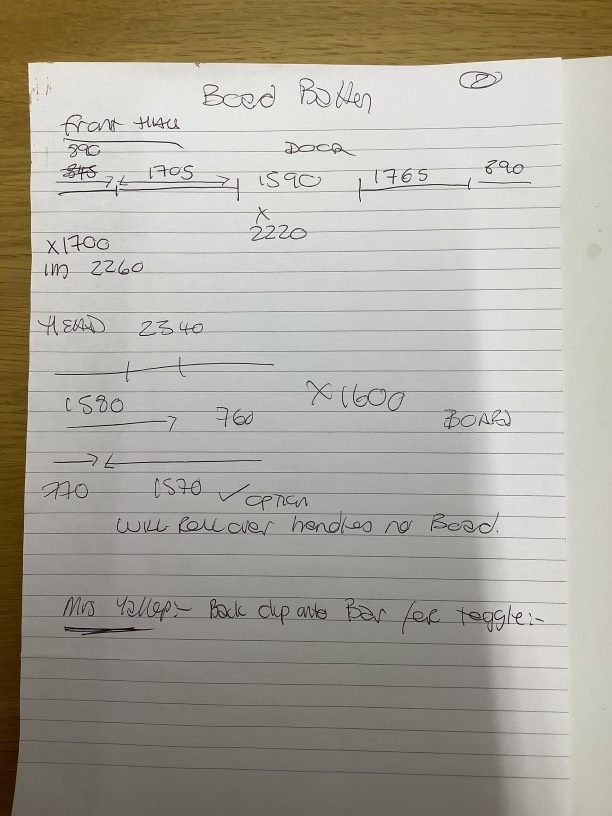 2
Bead Batten
front HALL
890
845 1705 DOOR 1590 1765 890
X
2220
X1700
IM 2260
HEAD 2340
1580 760 X1600 BOARD
770 1570 ✓ OPTION
Will Roll over handles no Bead.
Mrs Yallop:- Back clip onto Bar for toggle:-